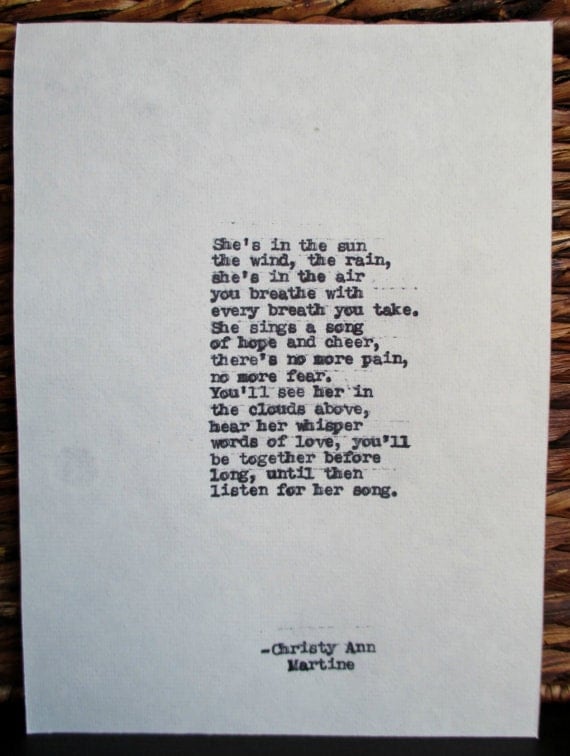 She's in the sun
the wind, the rain,
she's in the air
you breathe with
every breath you take.
She sings a song
of hope and cheer,
there's no more pain,
no more fear.
You'll see her in
the clouds above,
hear her whisper
words of love, you'll
be together before
long, until then
listen for her song.
-Christy Ann
Martine